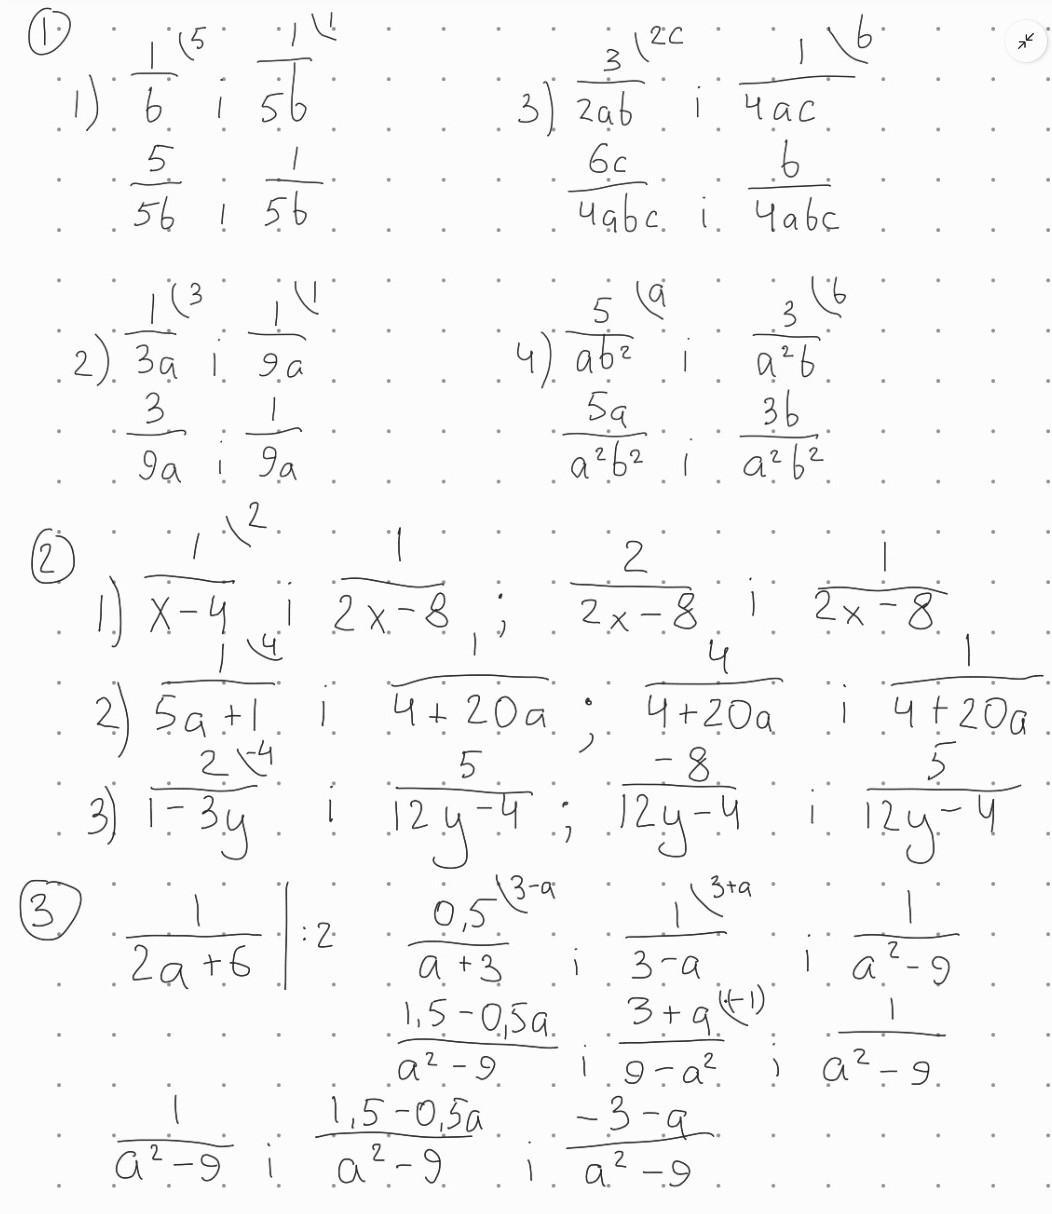 ①
1) 1/b \5 i 1/5b \1
5/5b i 1/5b
2) 1/3a \3 i 1/9a \1
3/9a i 1/9a
3) 3/2ab \2c i 1/4ac \b
6c/4abc i b/4abc
4) 5/ab² \a i 3/a²b \b
5a/a²b² i 3b/a²b²
②
1) 1/x-4 \2 i 1/2x-8 ; 2/2x-8 i 1/2x-8
2) 1/5a+1 \4 i 1/4+20a ; 4/4+20a i 1/4+20a
3) 2/1-3y \-4 i 5/12y-4 ; -8/12y-4 i 5/12y-4
③
1/2a+6 | :2 0,5/a+3 \3-a i 1/3-a \3+a i 1/a²-9
1,5-0,5a/a²-9 i 3+a/9-a² \(-1) i 1/a²-9
1/a²-9 i 1,5-0,5a/a²-9 i -3-a/a²-9